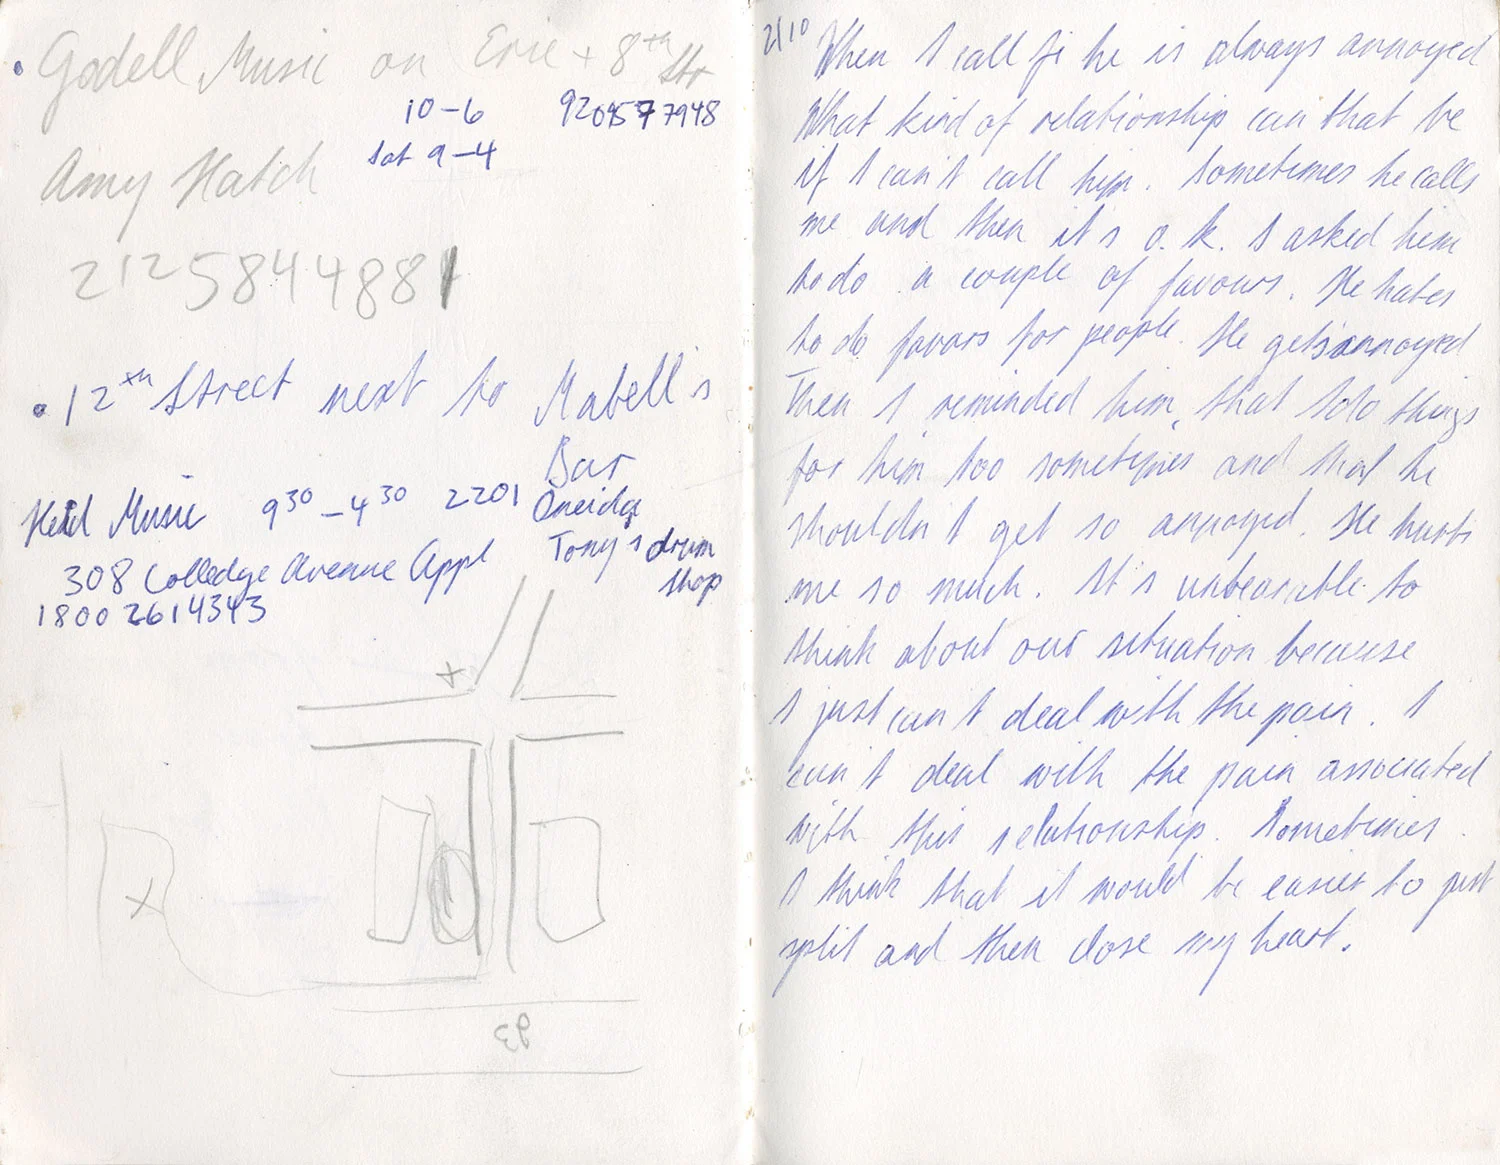 • Godell Music on Erie + 8th Str
10-6 9209577948
Sat 9-4
Amy Hatch
2125844881
• 12th Street next to Mabell's
Bar
Heid Music 9 30 - 4 30 2201 Oneida
Tony's drum
shop
308 Colledge Avenue Appl
1800 2614343
+
x
93
2/10
When I call he is always annoyed
What kind of relationship can that be
if I can't call him. Sometimes he calls
me and then it's o.k. I asked him
to do a couple of favours. He hates
to do favors for people. He gets annoyed
Then I reminded him, that I do things
for him too sometimes and that he
shouldn't get so annoyed. He hurts
me so much. It's unbearable to
think about our situation because
I just can't deal with the pain. I
can't deal with the pain associated
with this relationship. Sometimes
I think that it would be easier to just
split and then close my heart.